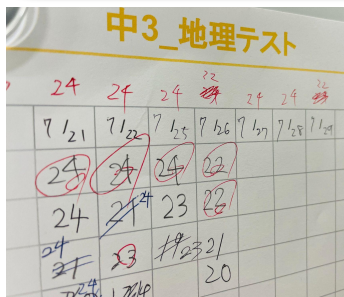 中3_地理テスト
22 22
24 24 24 24 24
7/21 7/22 7/25 7/26 7/27 7/28 7/29
24 24 24 22
24 24 23 22
24 23 23 21
24 24 20